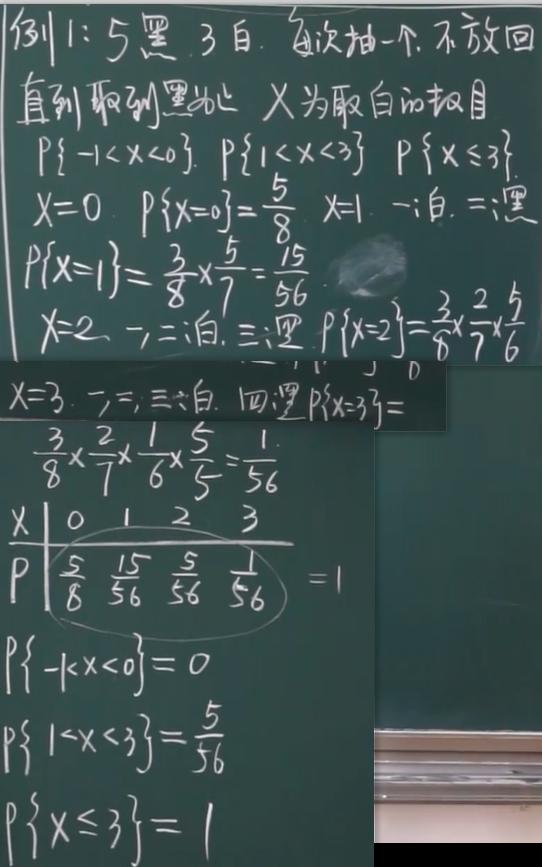 例1: 5黑 3白. 每次抽一个. 不放回
直到取到黑为止 X为取白的数目
P{-1<X<0}. P{1<X<3} P{X≤3}.
X=0. P{X=0}=5/8 X=1. 一:白. 二:黑
P{X=1}=3/8×5/7=15/56.
X=2. 一,二:白. 三:黑. P{X=2}=3/8×2/7×5/6
X=3. 一,二,三:白. 四:黑 P{X=3}=
3/8×2/7×1/6×5/5=1/56
X 0 1 2 3
P 5/8 15/56 5/56 1/56 =1
P{-1<X<0}=0
P{1<X<3}=5/56
P{X≤3}=1